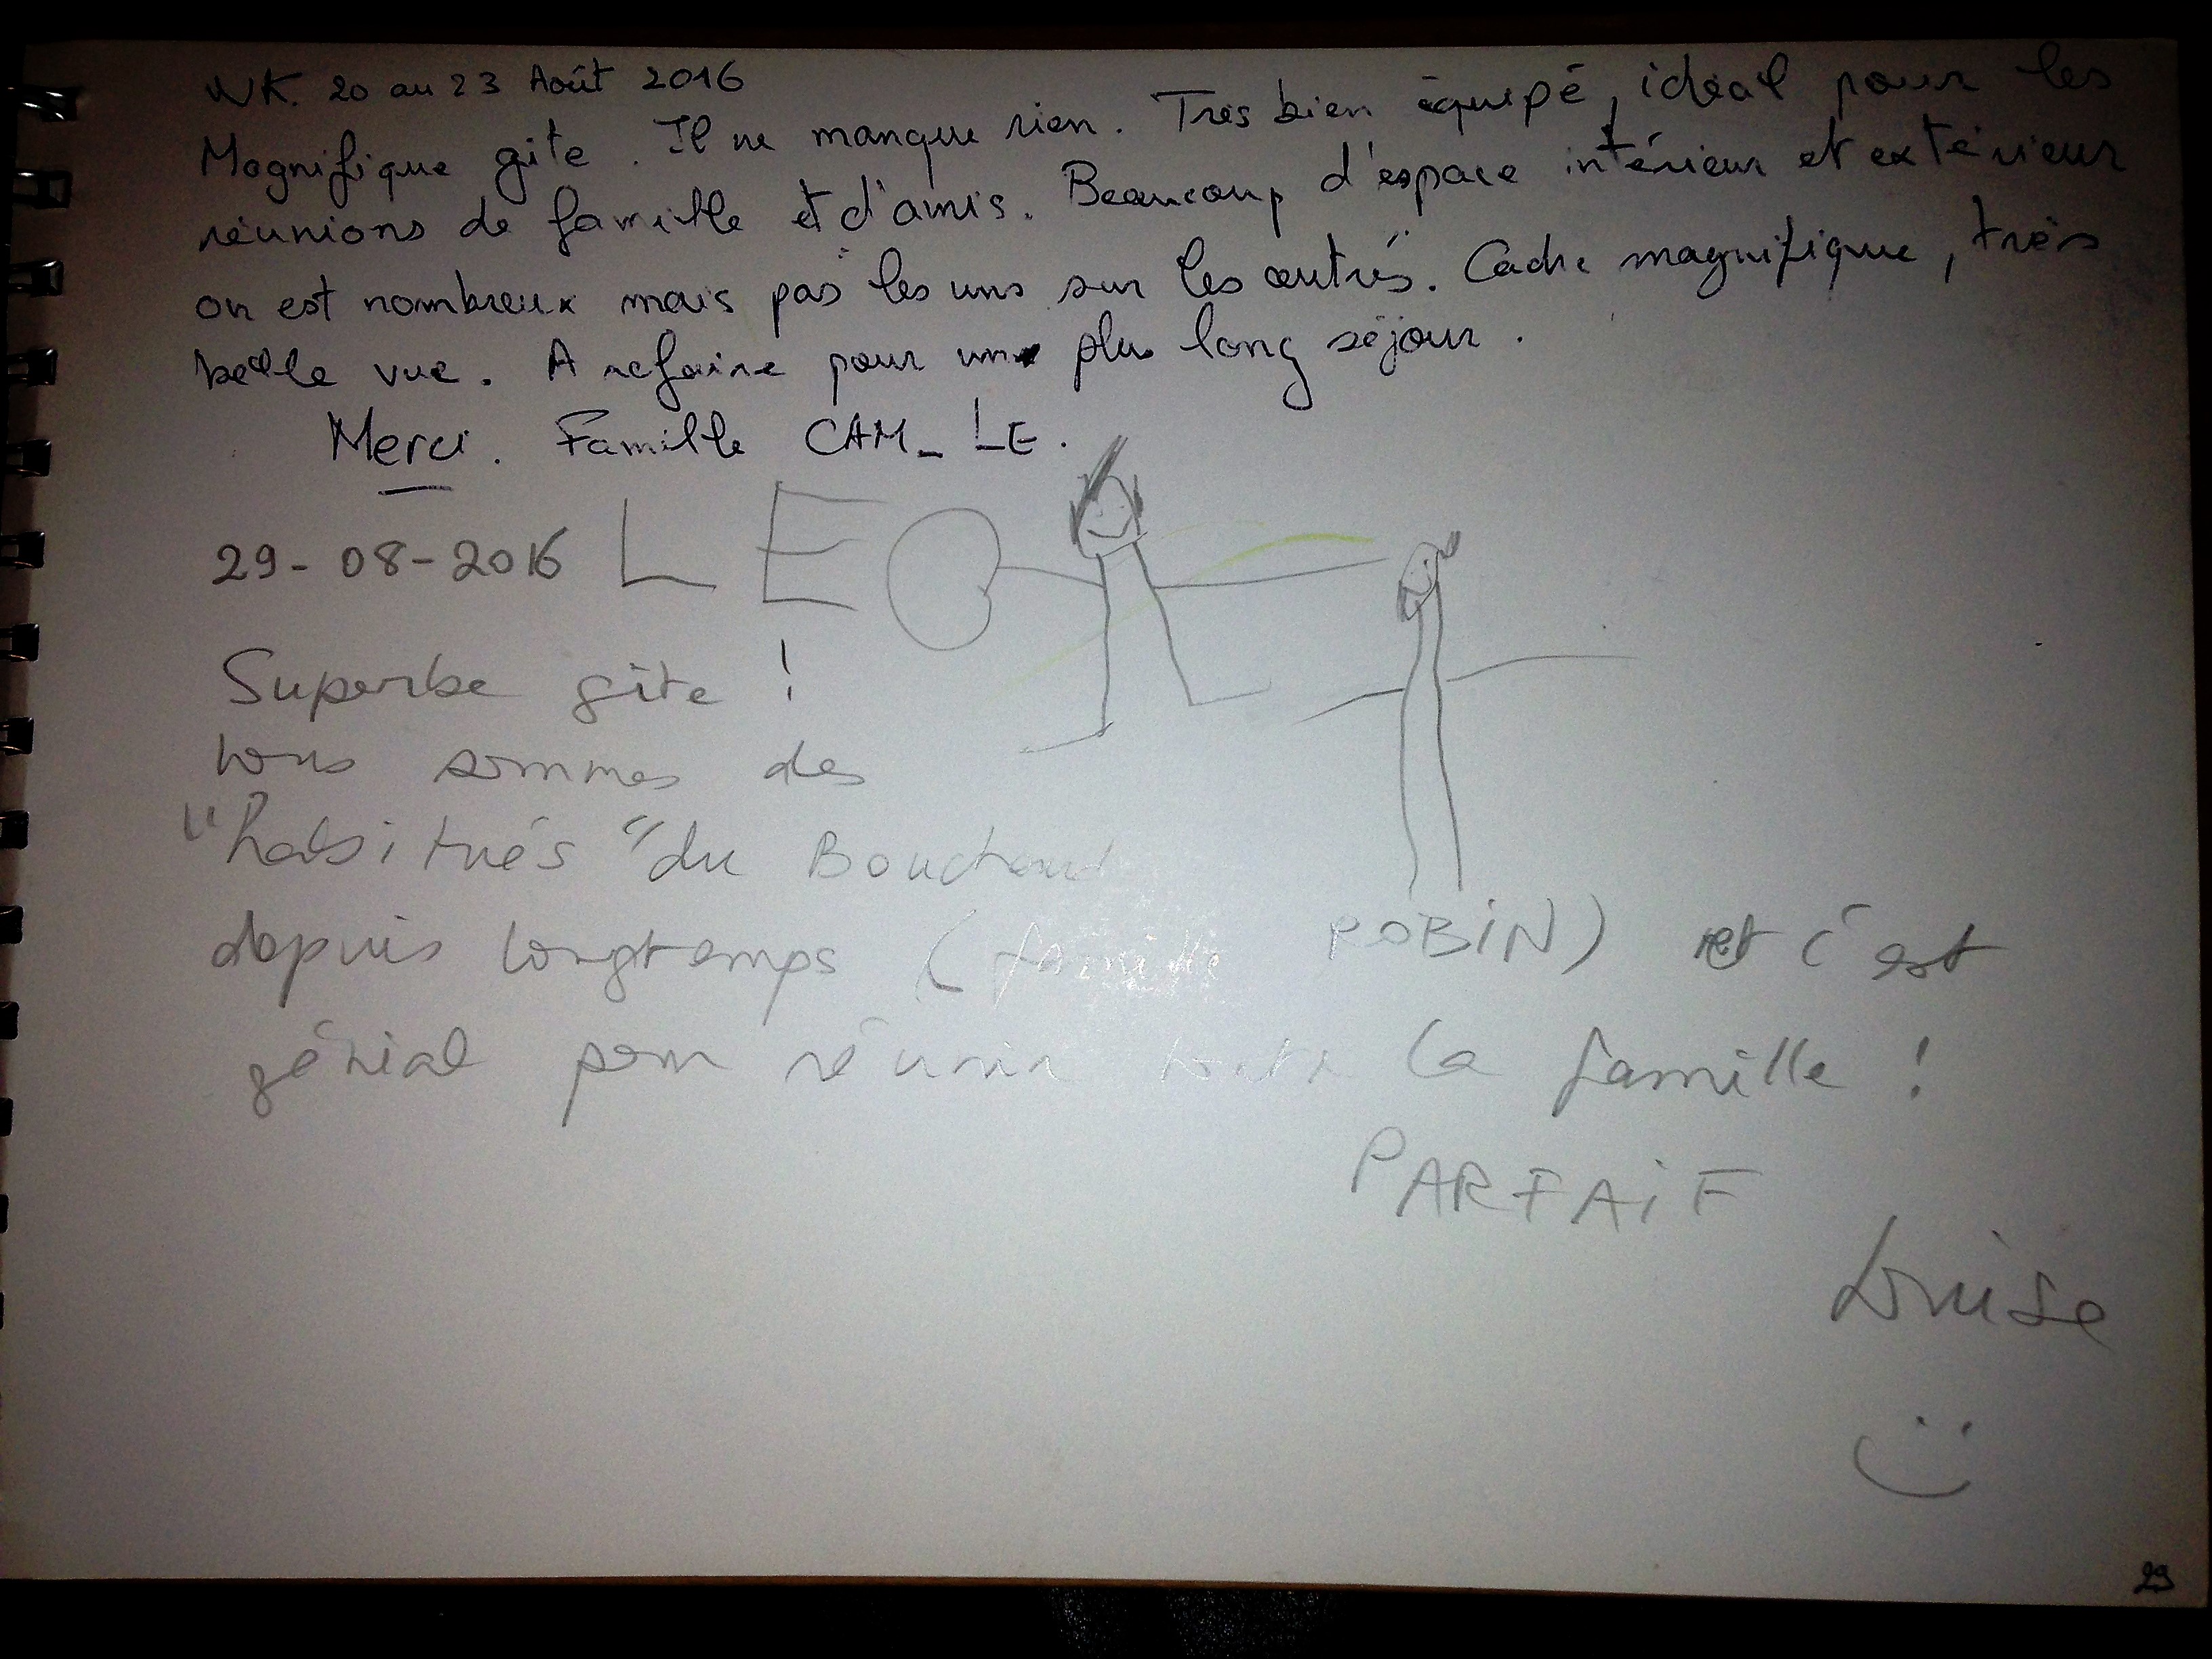 WK. 20 au 23 Août 2016
Magnifique gite. Il ne manque rien. Très bien équipé, idéal pour les
réunions de famille et d'amis. Beaucoup d'espace intérieur et extérieur
on est nombreux mais pas les uns sur les autres. Cadre magnifique, très
belle vue. A refaire pour un plus long séjour.
Merci. Famille CAM_ LE.
29-08-2016 LEO
Superbe gîte !
nous sommes des
"habitués" du
depuis longtemps (famille ROBIN) et c'est
génial pour réunir toute la famille !
PARFAIT
Louise
29